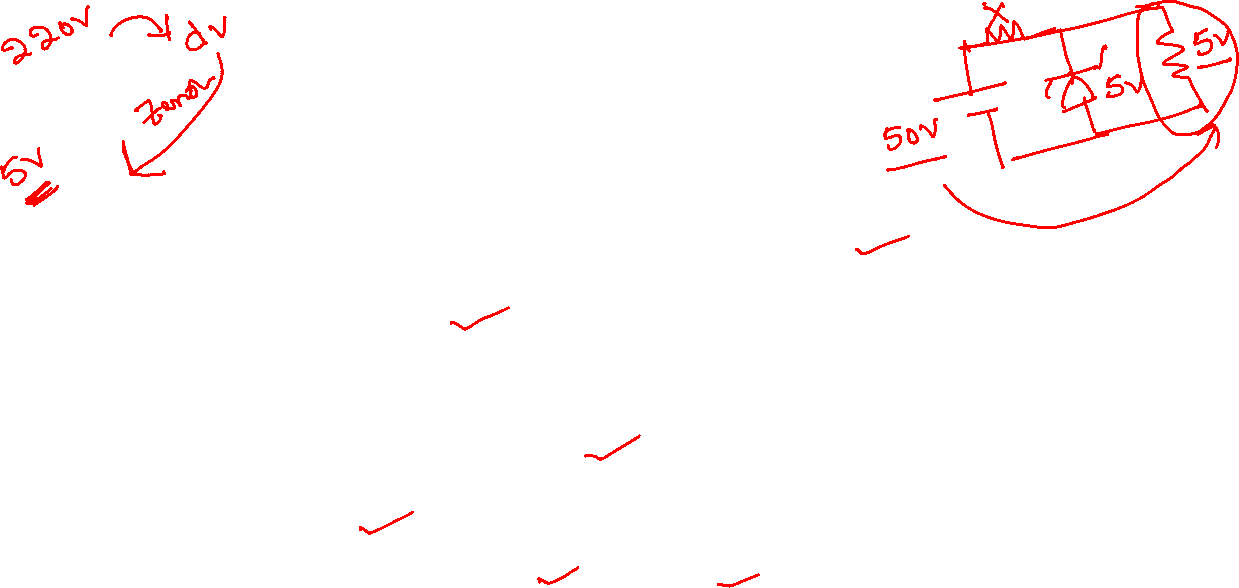 220V dV
Zener
5V
X
5V
5V
50V